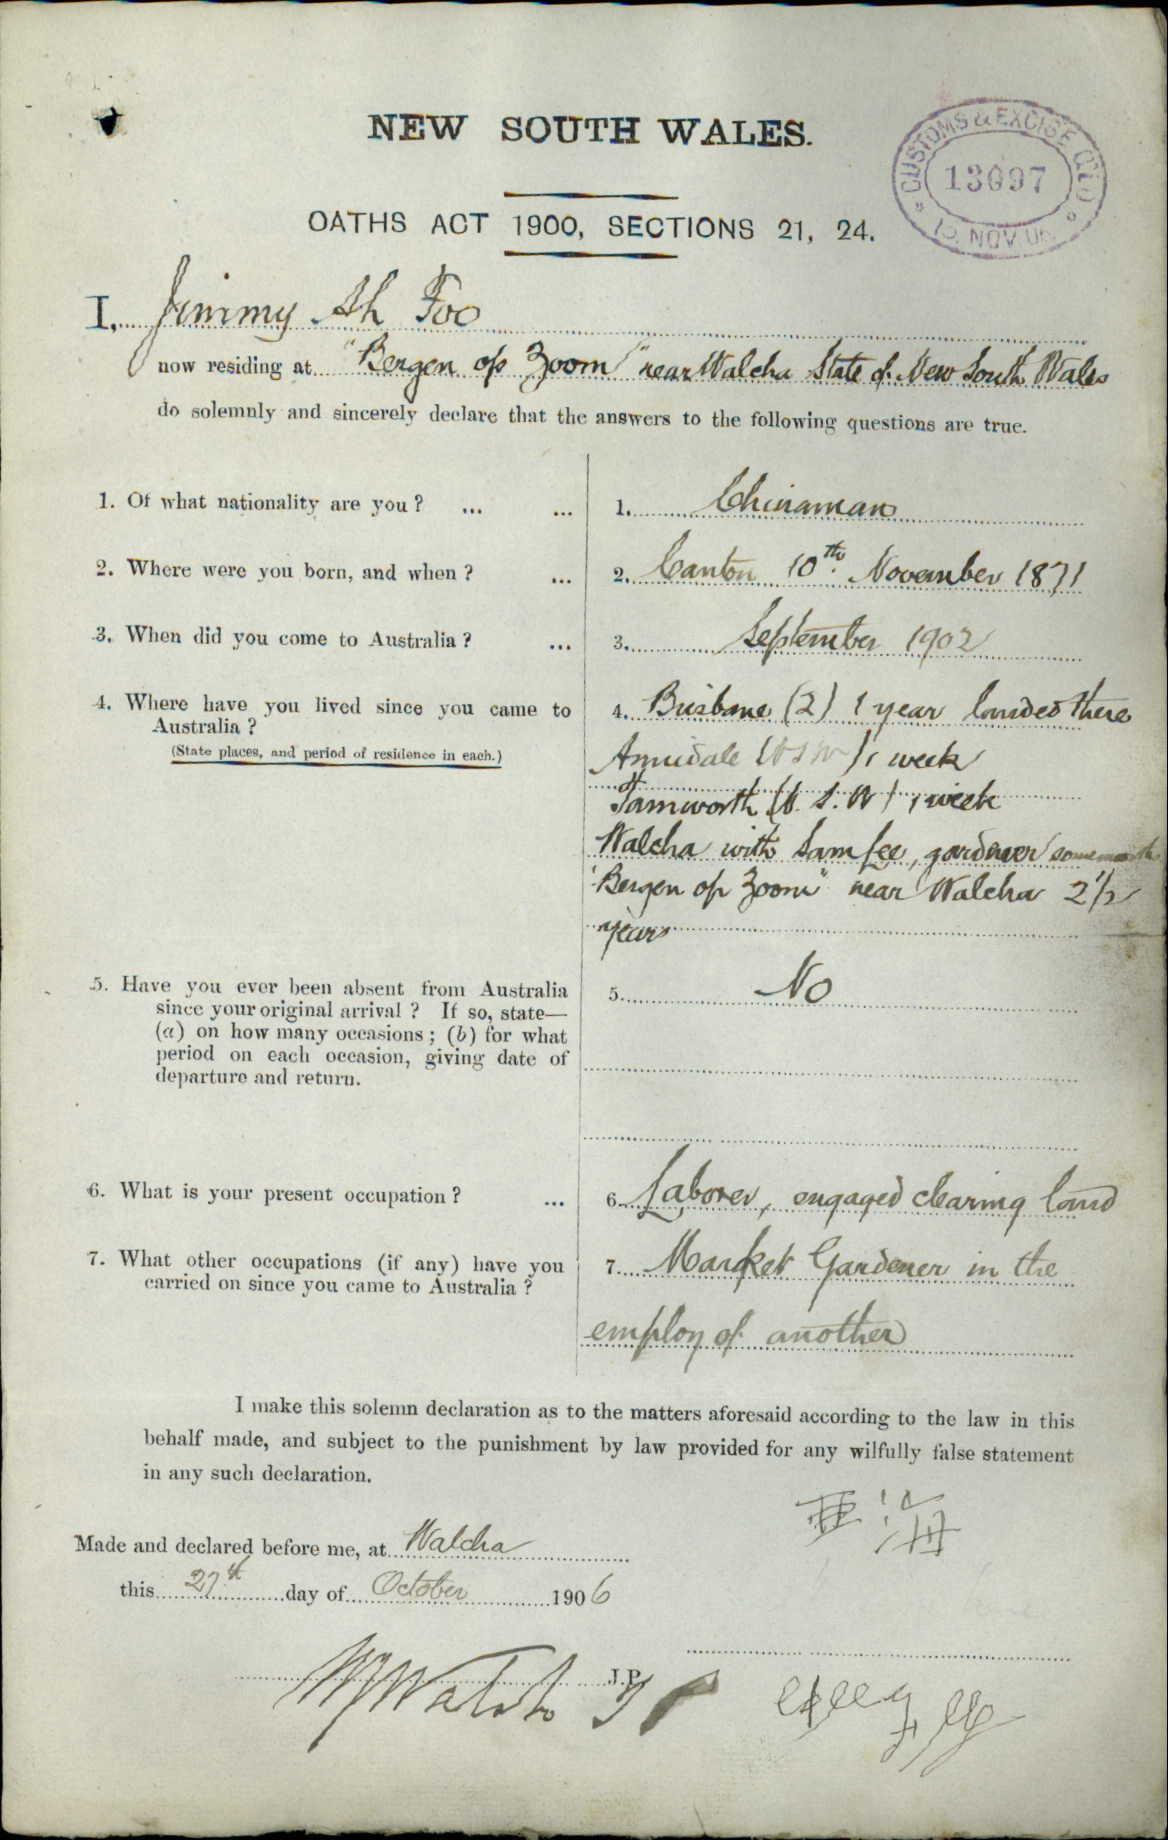 NEW SOUTH WALES.
CUSTOMS & EXCISE QLD
13097
15 NOV 06
OATHS ACT 1900, SECTIONS 21, 24.
I, Jimmy Ah Foo
now residing at "Bergen op Zoom" near Walcha State of New South Wales
do solemnly and sincerely declare that the answers to the following questions are true.
1. Of what nationality are you? ... ... 1. Chinaman
2. Where were you born, and when? ... 2. Canton 10th November 1871
3. When did you come to Australia? ... 3. September 1902
4. Where have you lived since you came to Australia?
(State places, and period of residence in each.)
4. Brisbane (2) 1 year landed there
Armidale (NSW) 1 week
Tamworth (N.S.W) 1 week
Walcha with Sam Lee, gardener some
"Bergen op Zoom" near Walcha 2 1/2
years
5. Have you ever been absent from Australia
since your original arrival? If so, state—
(a) on how many occasions; (b) for what
period on each occasion, giving date of
departure and return.
5. No
6. What is your present occupation? ... 6. Laborer, engaged clearing land
7. What other occupations (if any) have you
carried on since you came to Australia?
7. Market Gardener in the
employ of another
I make this solemn declaration as to the matters aforesaid according to the law in this
behalf made, and subject to the punishment by law provided for any wilfully false statement
in any such declaration.
亜海
Made and declared before me, at Walcha
this 27th day of October 1906
J.P.
Walsh J P